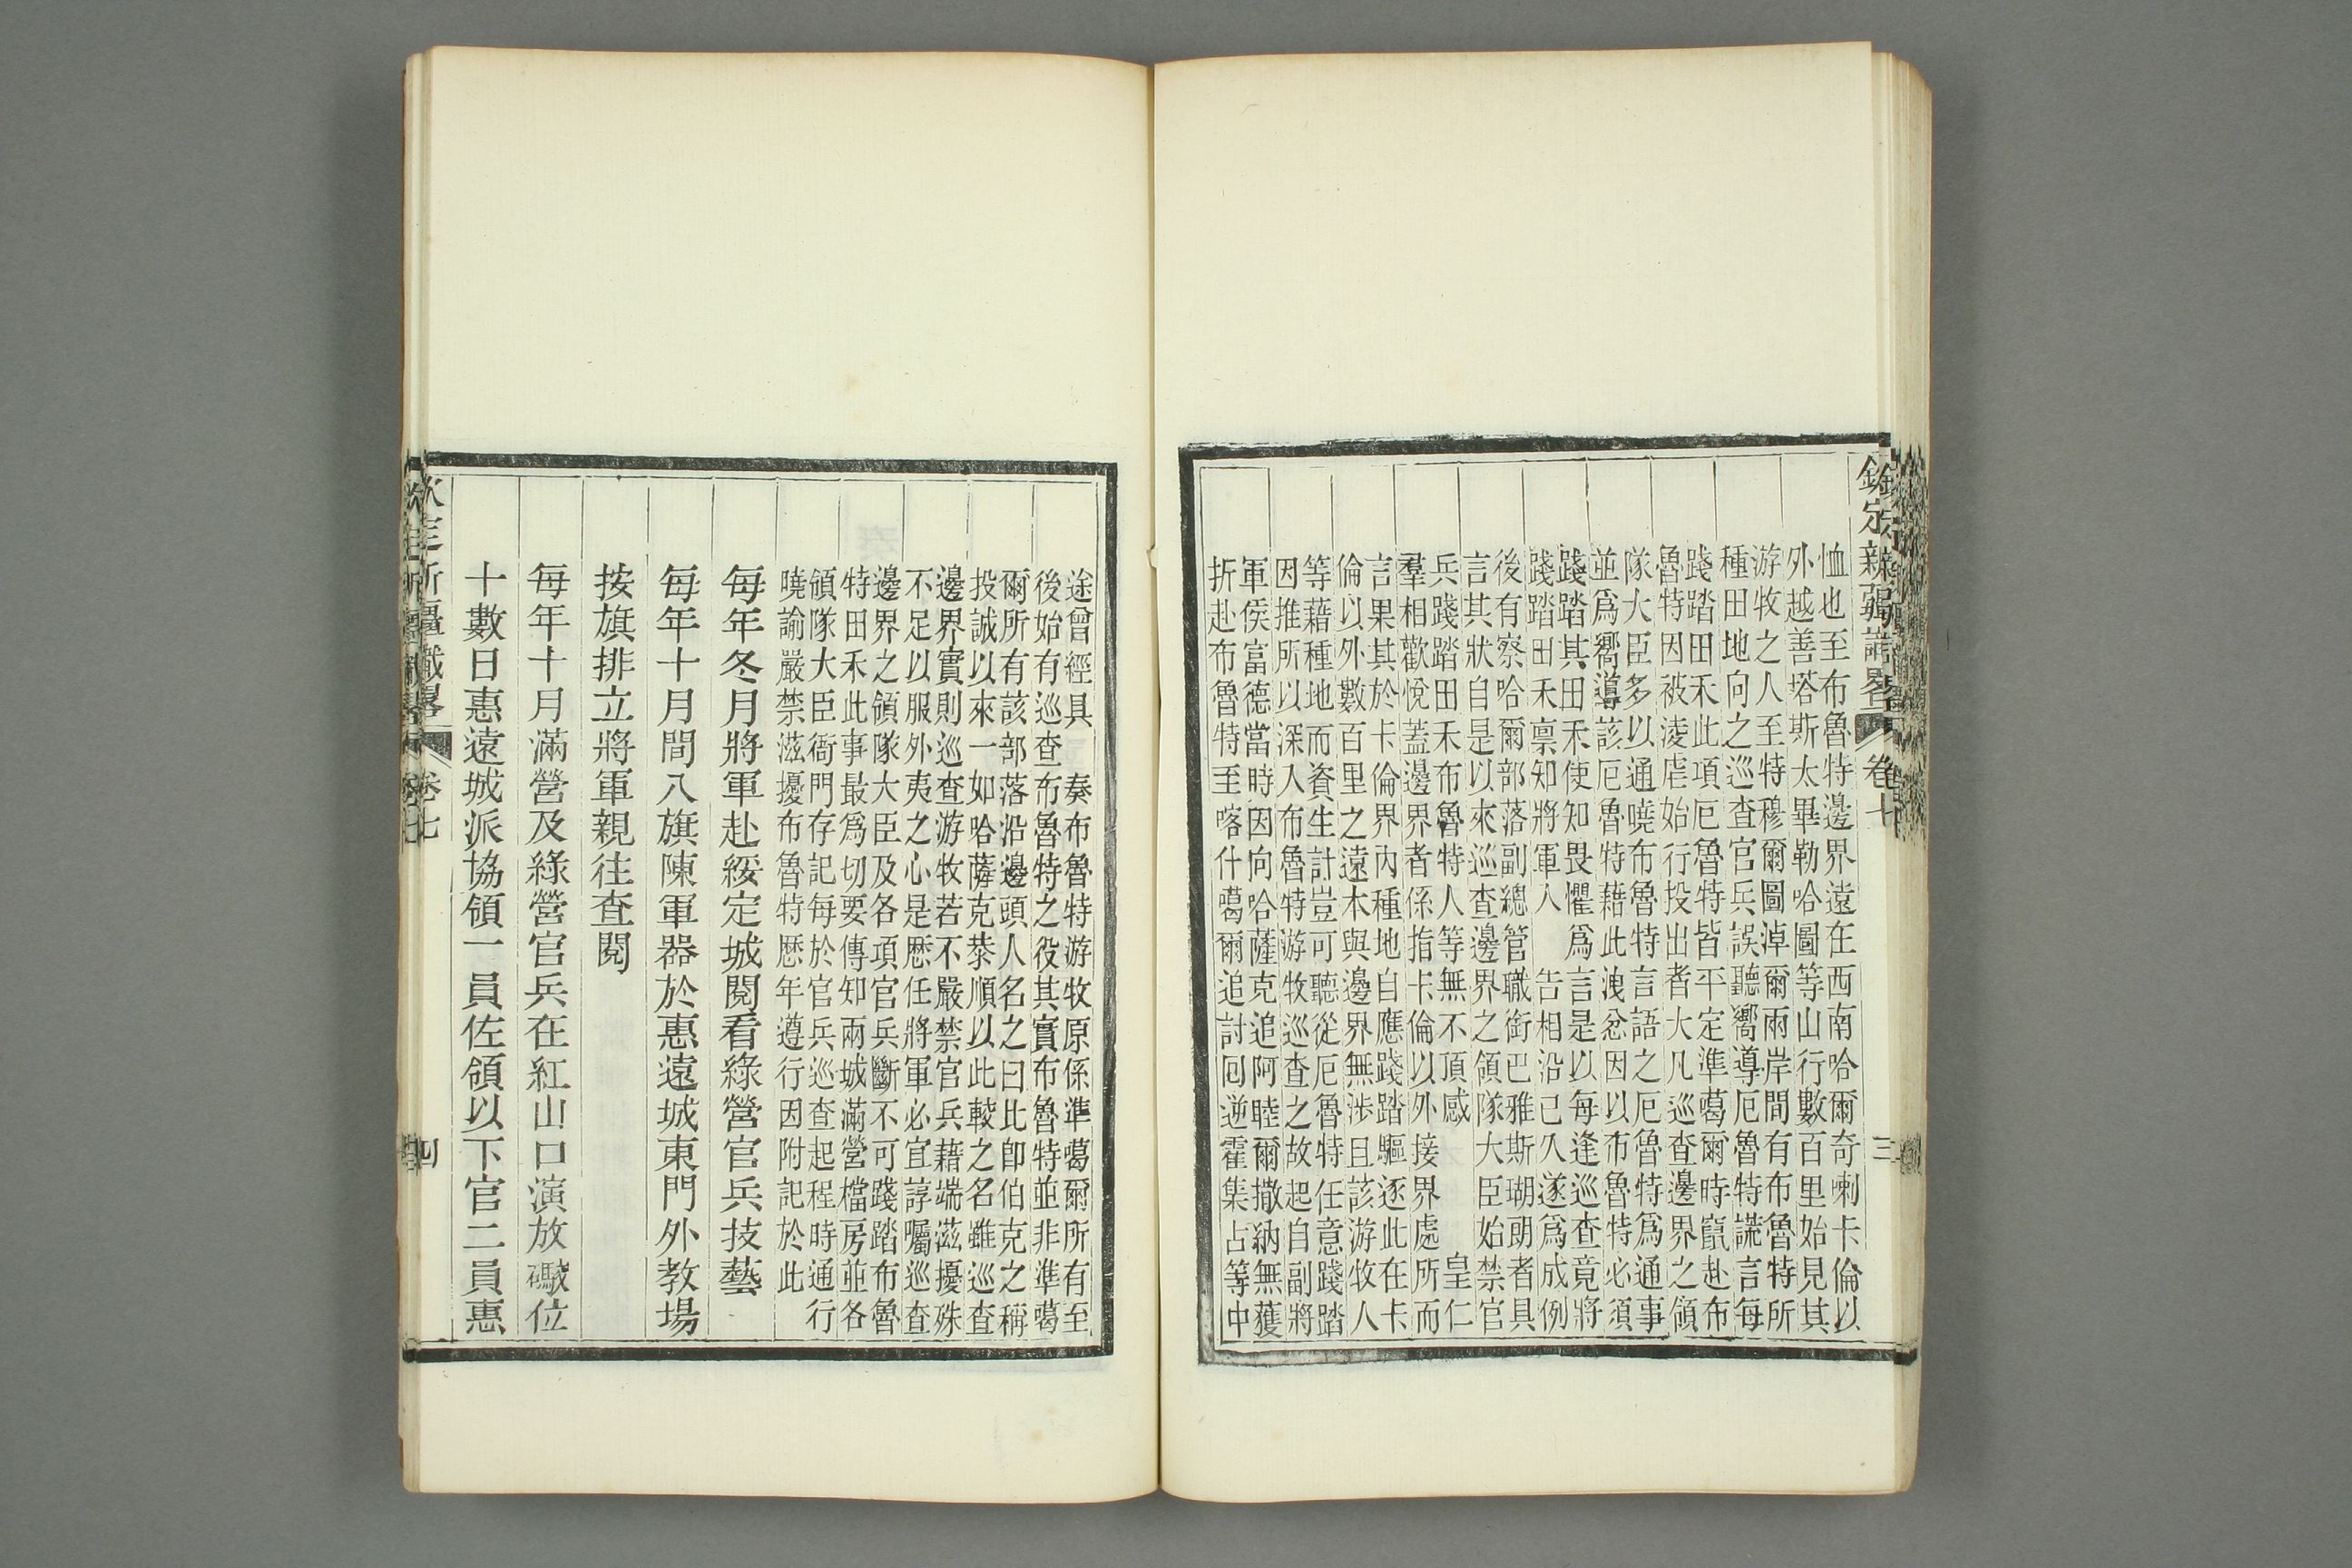 欽定新疆識畧 卷七 三
恤也至布魯特邊界遠在西南哈爾奇喇卡倫以
外越善塔斯太畢勒哈圖等山行數百里始見其
游牧之人至特穆爾圖淖爾兩岸間有布魯特所
種田地向之巡查官兵誤聽嚮導厄魯特謊言每
踐踏田禾此項厄魯特皆平定準噶爾時竄赴布
魯特因被淩虐始行投出者大凡巡查邊界之領
隊大臣多以通曉布魯特言語之厄魯特爲通事
並爲嚮導該厄魯特藉此洩忿因以布魯特必須
踐踏其田禾使知畏懼爲言是以每逢巡查竟將
踐踏田禾禀知將軍入 告相沿已久遂爲成例
後有察哈爾部落副總管職銜巴雅斯瑚朗者具
言其狀自是以來巡查邊界之領隊大臣始禁官
兵踐踏田禾布魯特人等無不頂感 皇仁
羣相歡悅蓋邊界者係指卡倫以外接界處所而
言果其於卡倫界內種地自應踐踏驅逐此在卡
倫以外數百里之遠木與邊界無涉且該游牧人
等藉種地而資生計豈可聽從厄魯特任意踐踏
因推所以深入布魯特游牧巡查之故起自副將
軍侯富德當時因向哈薩克追阿睦爾撒納無獲
折赴布魯特至喀什噶爾追討回逆霍集占等中
途曾經具 奏布魯特游牧原係準噶爾所有至
後始有巡查布魯特之役其實布魯特並非準噶
爾所有該部落沿邊頭人名之曰比卽伯克之稱
投誠以來一如哈薩克恭順以此較之名雖巡查
邊界實則巡查游牧若不嚴禁官兵藉端滋擾殊
不足以服外夷之心是歷任將軍必宜諄囑巡查
邊界之領隊大臣及各項官兵斷不可踐踏布魯
特田禾此事最爲切要傳知兩城滿營檔房並各
領隊大臣衙門存記每於官兵巡查起程時通行
曉諭嚴禁滋擾布魯特歷年遵行因附記於此
每年冬月將軍赴綏定城閱看綠營官兵技藝
每年十月間八旗陳軍器於惠遠城東門外教場
按旗排立將軍親往查閱
每年十月滿營及綠營官兵在紅山口演放礮位
十數日惠遠城派協領一員佐領以下官二員惠
欽定新疆識畧 卷七 四